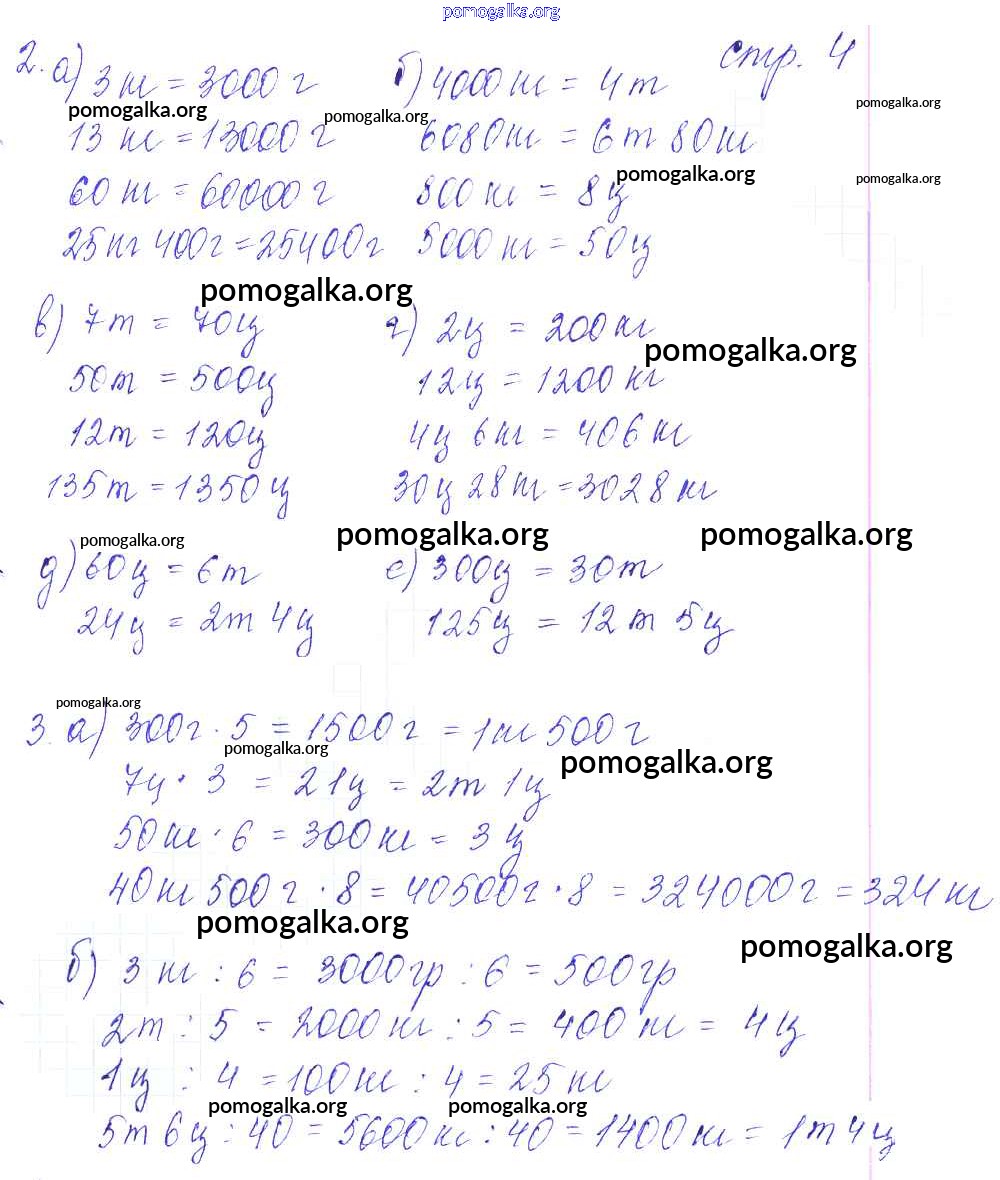 pomogalka.org
стр. 4
2. а) 3 кг = 3000 г б) 4000 кг = 4 т
pomogalka.org pomogalka.org pomogalka.org
13 кг = 13000 г 6080 кг = 6 т 80 кг
pomogalka.org pomogalka.org
60 кг = 60000 г 800 кг = 8 ц
25 кг 400 г = 25400 г 5000 кг = 50 ц
pomogalka.org
в) 7 т = 70 ц г) 2 ц = 200 кг
pomogalka.org
50 т = 500 ц 12 ц = 1200 кг
12 т = 120 ц 4 ц 6 кг = 406 кг
135 т = 1350 ц 30 ц 28 кг = 3028 кг
pomogalka.org pomogalka.org pomogalka.org
д) 60 ц = 6 т е) 300 ц = 30 т
24 ц = 2 т 4 ц 125 ц = 12 т 5 ц
pomogalka.org
3. а) 300 г · 5 = 1500 г = 1 кг 500 г
pomogalka.org pomogalka.org
7 ц · 3 = 21 ц = 2 т 1 ц
50 кг · 6 = 300 кг = 3 ц
40 кг 500 г · 8 = 40500 г · 8 = 324000 г = 324 кг
pomogalka.org pomogalka.org
б) 3 кг : 6 = 3000 гр : 6 = 500 гр
2 т : 5 = 2000 кг : 5 = 400 кг = 4 ц
1 ц : 4 = 100 кг : 4 = 25 кг
pomogalka.org pomogalka.org
5 т 6 ц : 40 = 5600 кг : 40 = 1400 кг = 1 т 4 ц